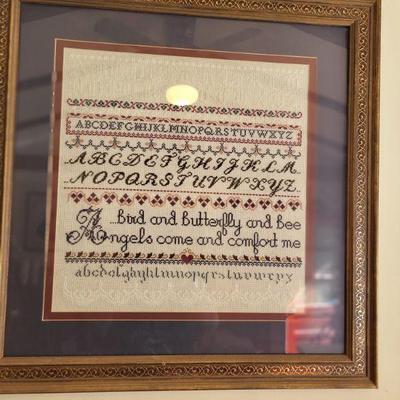 ABCDEFGHIJKLMNOPQRSTUVWXYZ
ABCDEFGHIJKLM
NOPQRSTUVWXYZ
A Bird and Butterfly and Bee
Angels come and comfort me
abcdefghijklmnopqrstuvwxyz